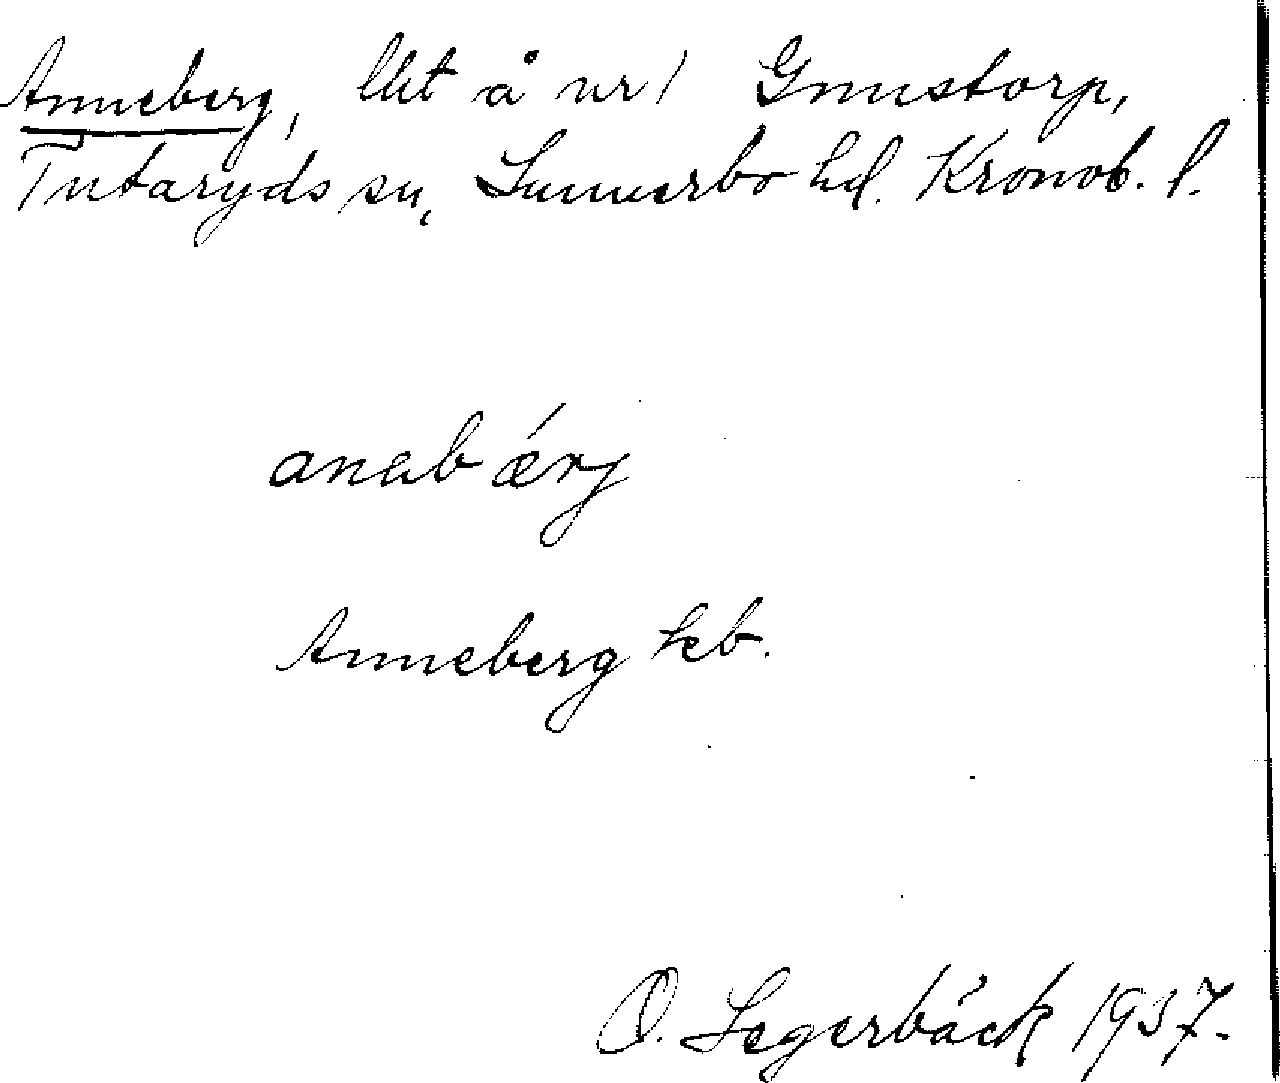 Anneberg, lht å nr 1 Gnustorp,
Tutaryds sn, Sunnerbo hd. Kronob. l.
anabǽrj
Anneberg keb.
O. Segerbäck 1937.